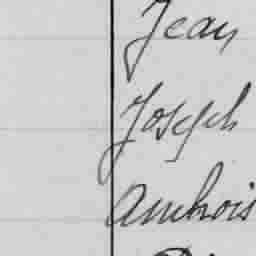 Jean
Joseph
Ambrois